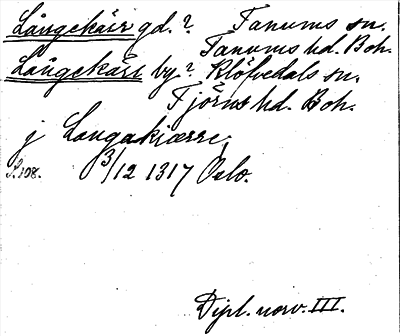 Långekärr gd.? Tanums sn.
Tanums hd. Boh.
Långekärr by? Klöfvedals sn.
Tjörns hd. Boh.
j Langakiærre,
S. 108. 3/12 1317 Oslo.
Dipl. norv. III.